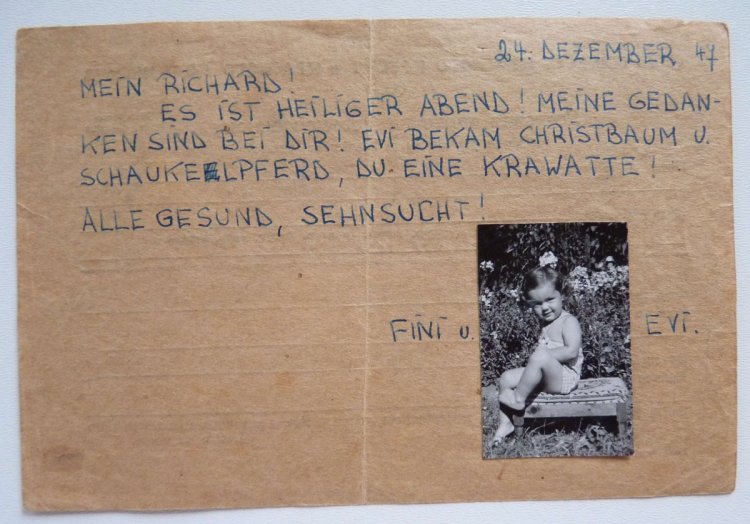 24. DEZEMBER 47
MEIN RICHARD!
ES IST HEILIGER ABEND! MEINE GEDAN-
KEN SIND BEI DIR! EVI BEKAM CHRISTBAUM U.
SCHAUKELPFERD, DU EINE KRAWATTE!
ALLE GESUND, SEHNSUCHT!
FINI u. EVI.